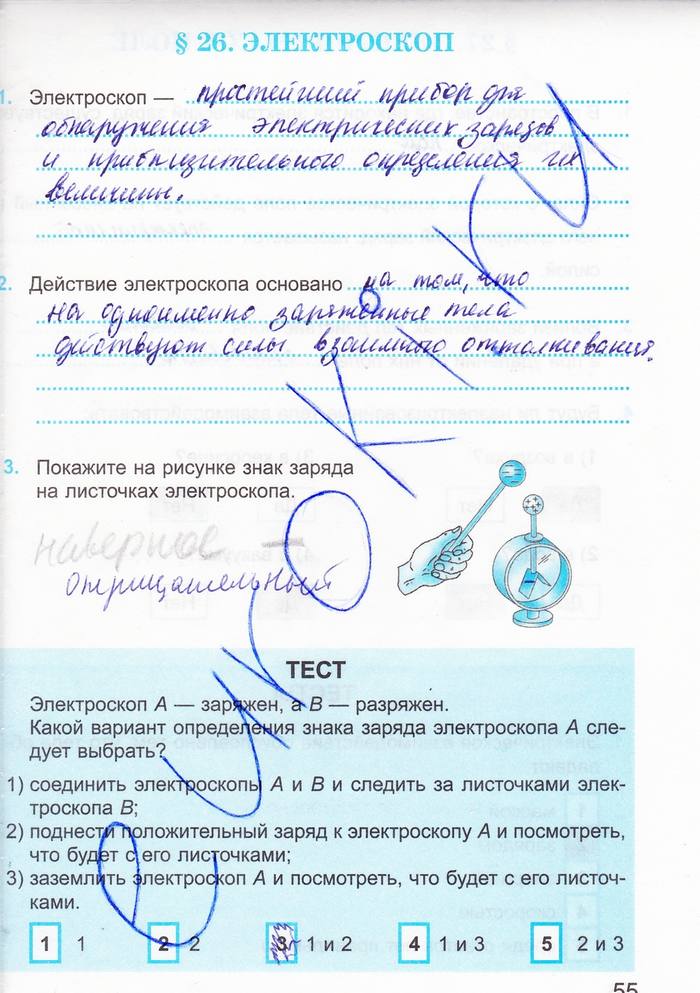 § 26. ЭЛЕКТРОСКОП
1. Электроскоп — простейший прибор для
обнаружения электрических зарядов
и приблизительного определения их
величины.
2. Действие электроскопа основано на том, что
на одноименно заряженные тела
действуют силы взаимного отталкивания.
3. Покажите на рисунке знак заряда
на листочках электроскопа.
наверное –
отрицательный
ТЕСТ
Электроскоп А — заряжен, а В — разряжен.
Какой вариант определения знака заряда электроскопа А сле-
дует выбрать?
1) соединить электроскопы А и В и следить за листочками элек-
троскопа В;
2) поднести положительный заряд к электроскопу А и посмотреть,
что будет с его листочками;
3) заземлить электроскоп А и посмотреть, что будет с его листоч-
ками.
1 1 2 2 3 1 и 2 4 1 и 3 5 2 и 3
55